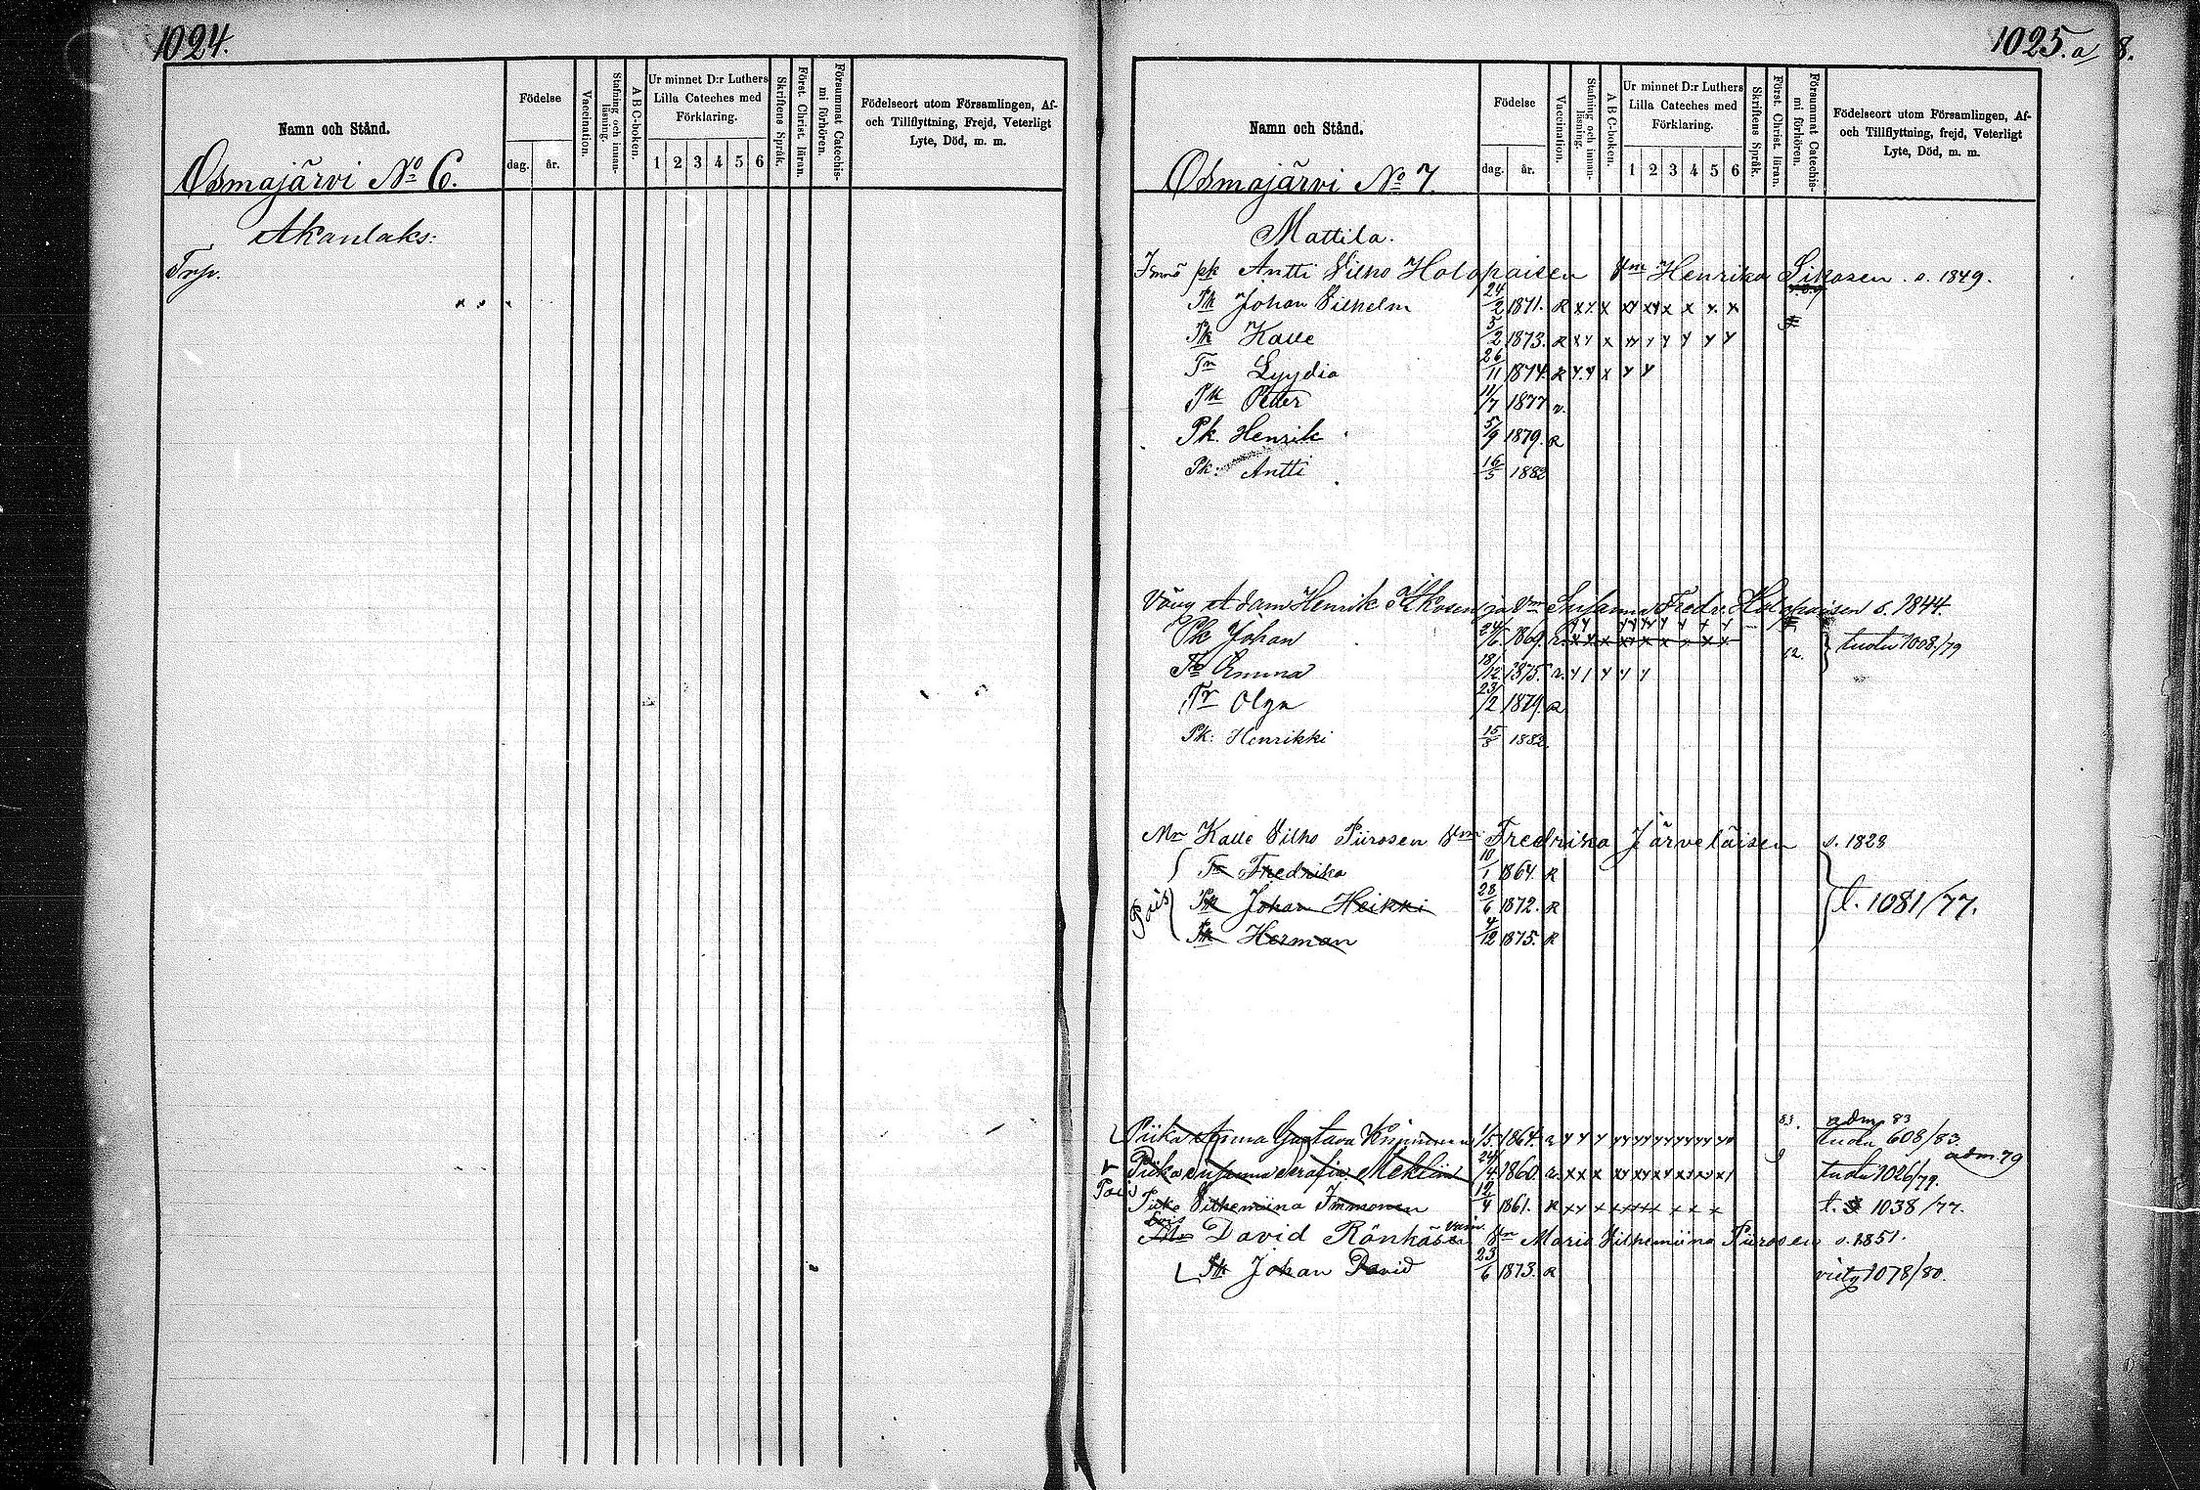 1024.
Namn och Stånd.
Födelse
dag. år.
Vaccination.
Stafning och innan-läsning.
A B C-boken.
Ur minnet D:r Luthers
Lilla Cateches med
Förklaring.
1 2 3 4 5 6
Skriftens Språk.
Först. Christ. läran.
Försummat Catechis-mi förhören.
Födelseort utom Församlingen, Af-
och Tillflyttning, Frejd, Veterligt
Lyte, Död, m. m.
Osmajärvi No 6.
Akanlaks:
Trp.
1025.a 8.
Namn och Stånd.
Födelse
dag. år.
Vaccination.
Stafning och innan-läsning.
A B C-boken.
Ur minnet D:r Luthers
Lilla Cateches med
Förklaring.
1 2 3 4 5 6
Skriftens Språk.
Först. Christ. läran.
Försummat Catechis-mi förhören.
Födelseort utom Församlingen, Af-
och Tillflyttning, frejd, Veterligt
Lyte, Död, m. m.
Osmajärvi No 7.
Mattila.
pk Antti Vilho Holopaisen Vm Henrika s. 1849.
Pk Johan Vilhelm 24/2 1871. R x x x x x x x x x
Pk Kalle 5/2 1873. R x y x y y y y y y
Tr Lyydia 26/11 1874. R y y x y y
Pk Petter 11/7 1877 r.
Pk. Henrik 5/9 1879. R
Pk: Antti 16/5 1882
Henrik ja Vm Susanna Fredr. Holopaisen s. 1844.
Pk Johan 24/6 1869. r. tuotu 1008/79
Tr Emma 18/12 1875. r. y 1 y y y 12.
Tr Olga 23/2 1879. R
Pk: Henrikki 15/8 1882.
Mn Kalle Vilho Piirosen Vm Fredrika Järveläisen s. 1828
Tr Fredrika 10/1 1864. R
Pois Pk Johan Heikki 28/6 1872. R t. 1081/77.
Pk Herman 4/12 1875. R
Piika Anna Gustava 1/5 1864. 83. adm. 83
tuotu 608/83.
Piika Susanna Serafia Meklin 24/4 1860. adm. 79
tuotu 1026/79.
Pois Piika Vilhemiina Immonen 12/4 1861. R t. 1038/77.
Lois Mn David Rönkäsen vaim. Vm Maria Vilhemiina Piirosen s. 1851.
Pk Johan David 23/6 1873. R viety 1078/80.